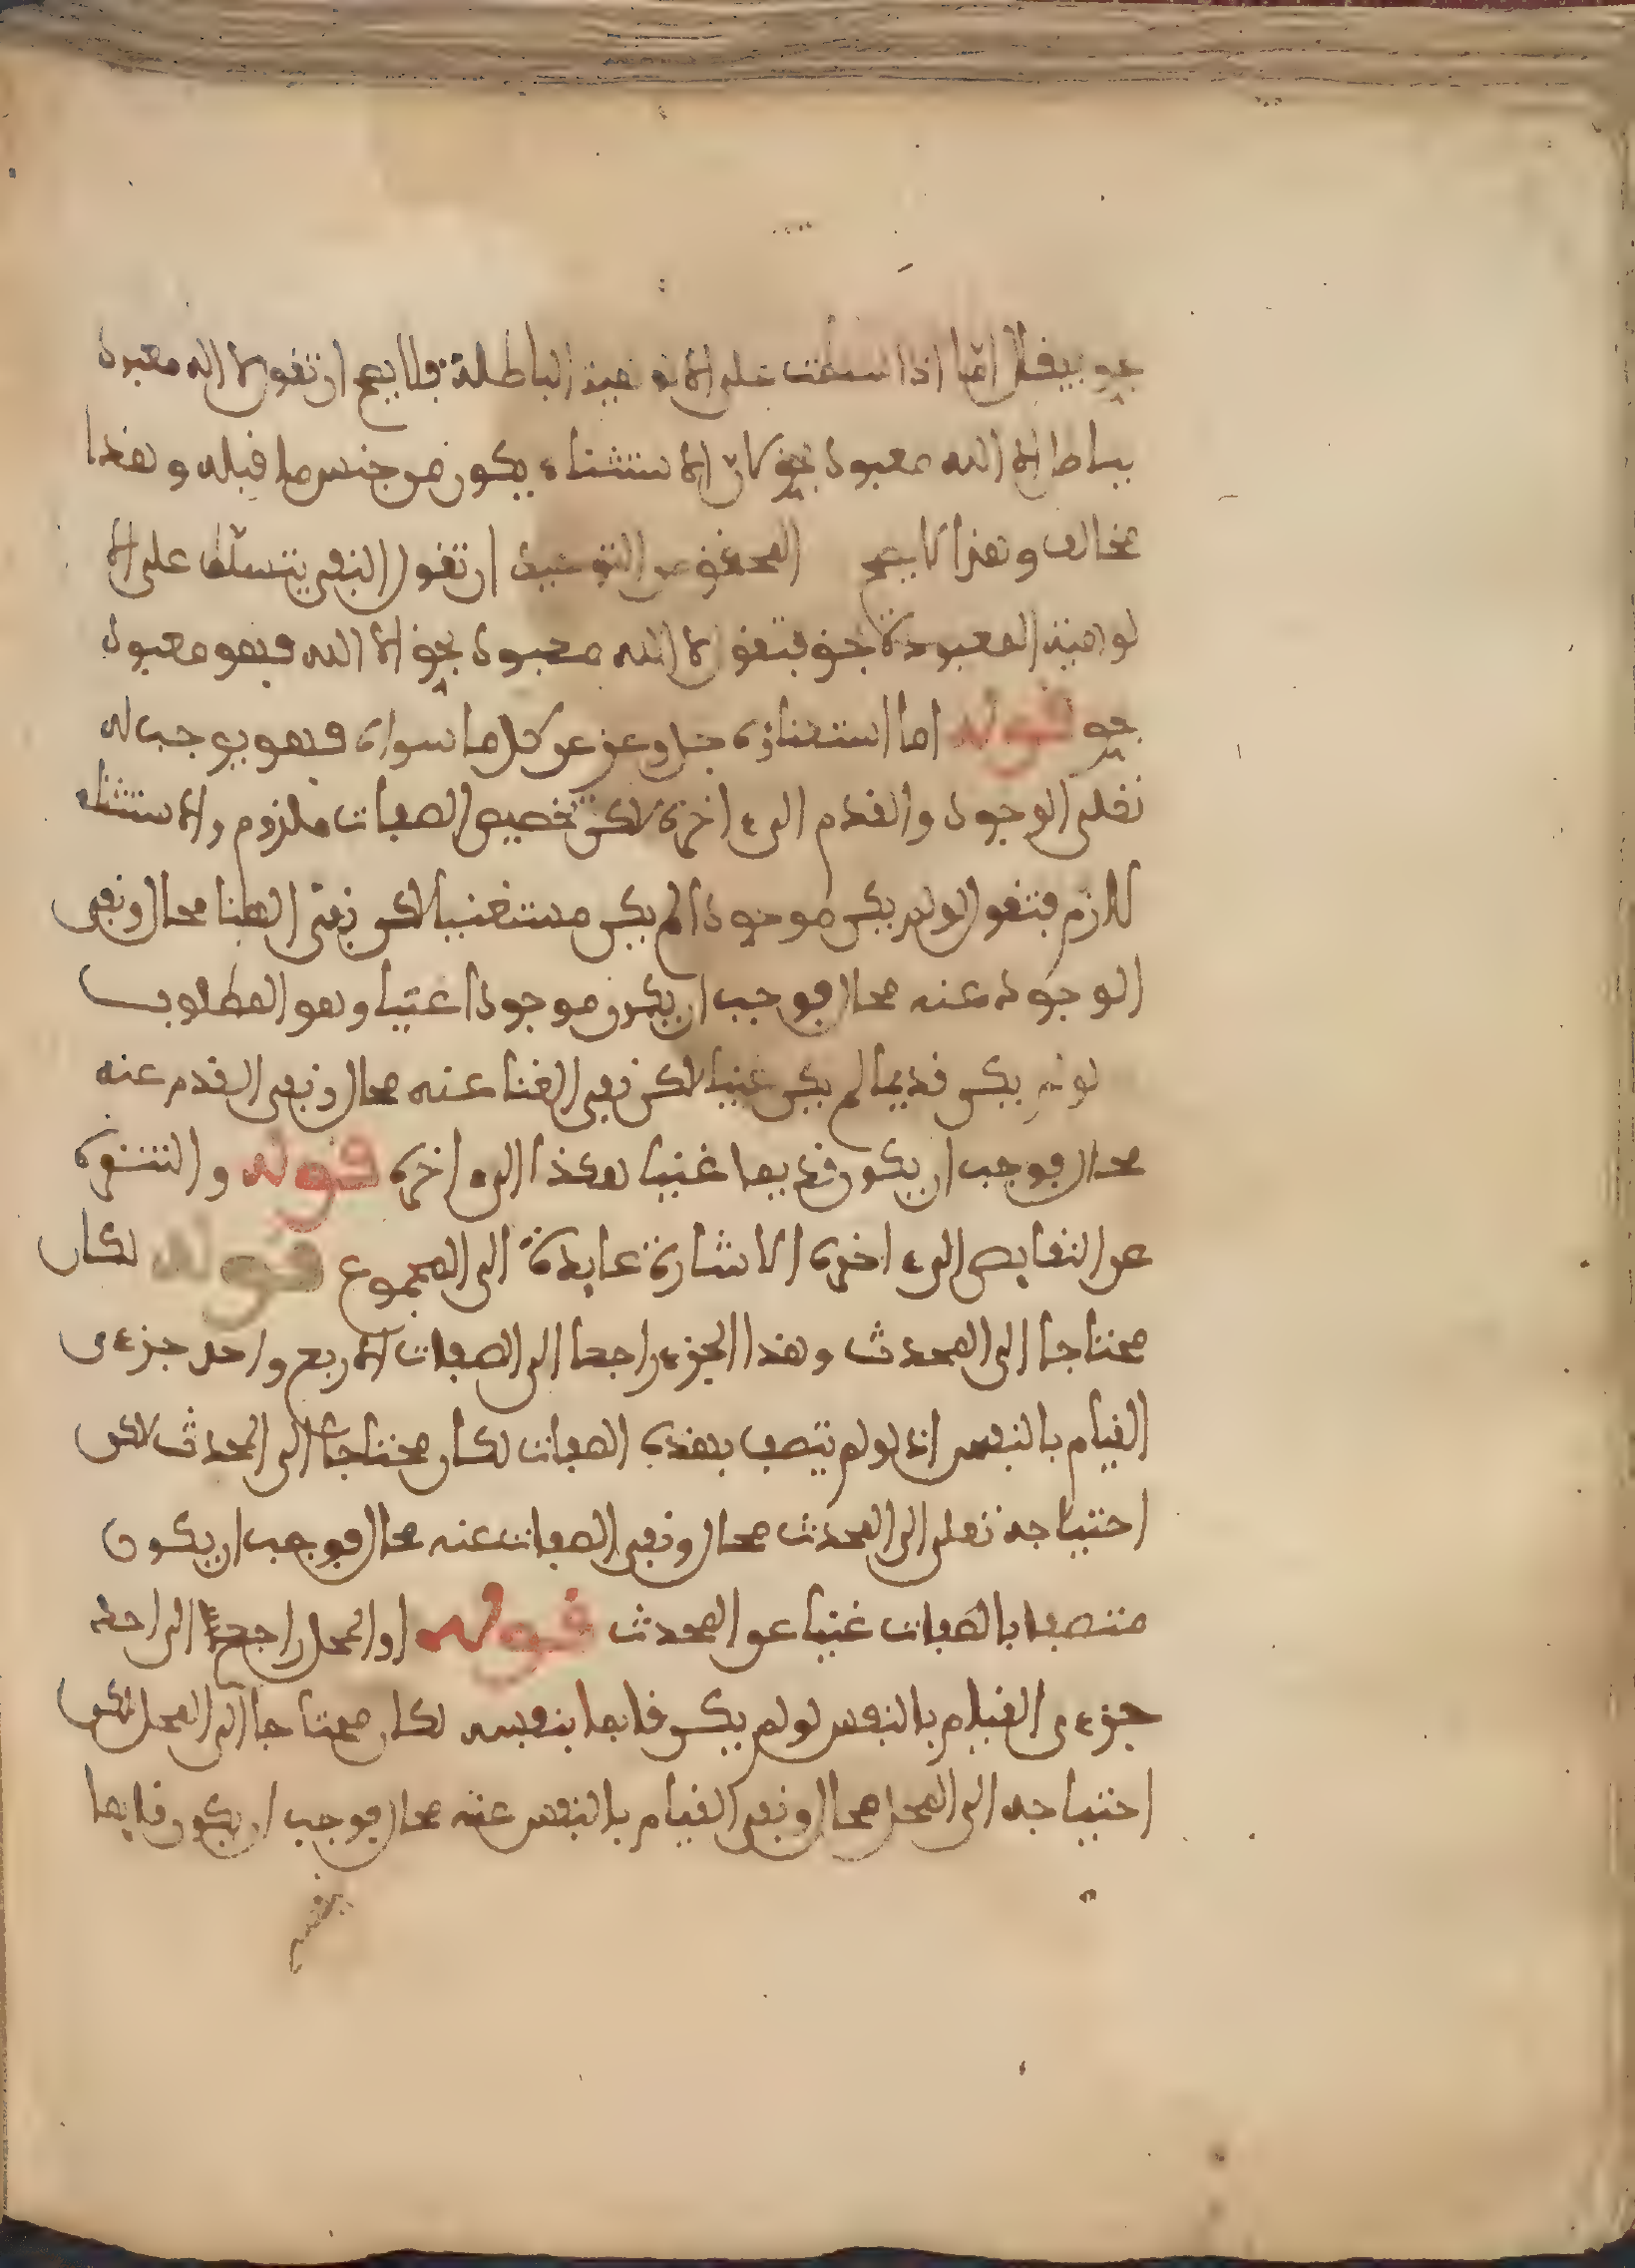 بحق فيقال اما اذا تسلطت على الالوهية الباطلة فلا يصح ان تقول لا اله معبود
بباطل الا الله معبود بحق لان الاستثناء يكون من جنس ما قبله وهذا
مخالف وهذا لا يصح المحققون التوحيد ان تقول النفي يتسلط على الا
لوهية المعبودة بحق فتقول لا اله معبود بحق الا الله فهو معبود
بحق قوله اما استغناؤه جل وعز عن كل ما سواه فهو يوجب له
تعلى الوجود والقدم الى ءاخره لاكن تخصيص الصفات ملزوم والاستثناء
للازم فتقول لو لم يكن موجودا لم يكن مستغنيا لاكن نفي الغنا محال ونفي
الوجود عنه محال فوجب ان يكون موجودا غنيا وهو المطلوب
لو لم يكن قديما لم يكن غنيا لاكن نفي الغنا عنه محال ونفي القدم عنه
محال فوجب ان يكون قديما غنيا هكذا الى ءاخره قوله والتنزه
عن النقايص الى ءاخره الاشارة عايدة الى المجموع قوله لكان
محتاجا الى المحدث وهذا الجزء راجعا الى الصفات الاربع واحد جزءى
القيام بالنفس اذ لو لم يتصف بهذه الصفات لكان محتاجا الى المحدث لاكن
احتياجه تعلى الى المحدث محال ونفي الصفات عنه محال فوجب ان يكون
متصفا بالصفات غنيا عن المحدث قوله او المحل راجع الى احد
جزءى القيام بالنفس لو لم يكن قايما بنفسه لكان محتاجا الى المحل لاكن
احتياجه الى المحل محال ونفي القيام بالنفس عنه محال فوجب ان يكون قايما